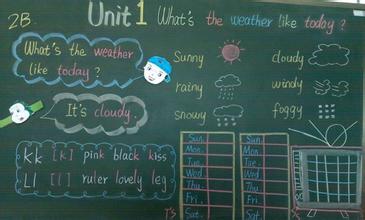 2B.
Unit 1 What's the weather like today?
What's the weather
like today?
It's cloudy.
Sunny
cloudy
rainy
windy
snowy
foggy
Kk [k] pink black kiss
Ll [l] ruler lovely leg
Sun.
Mon.
Tue.
Wed.
Thu.
Fri.
Sat.
Sun.
Mon.
Tue.
Wed.
Thu.
Fri.
Sat.
T's